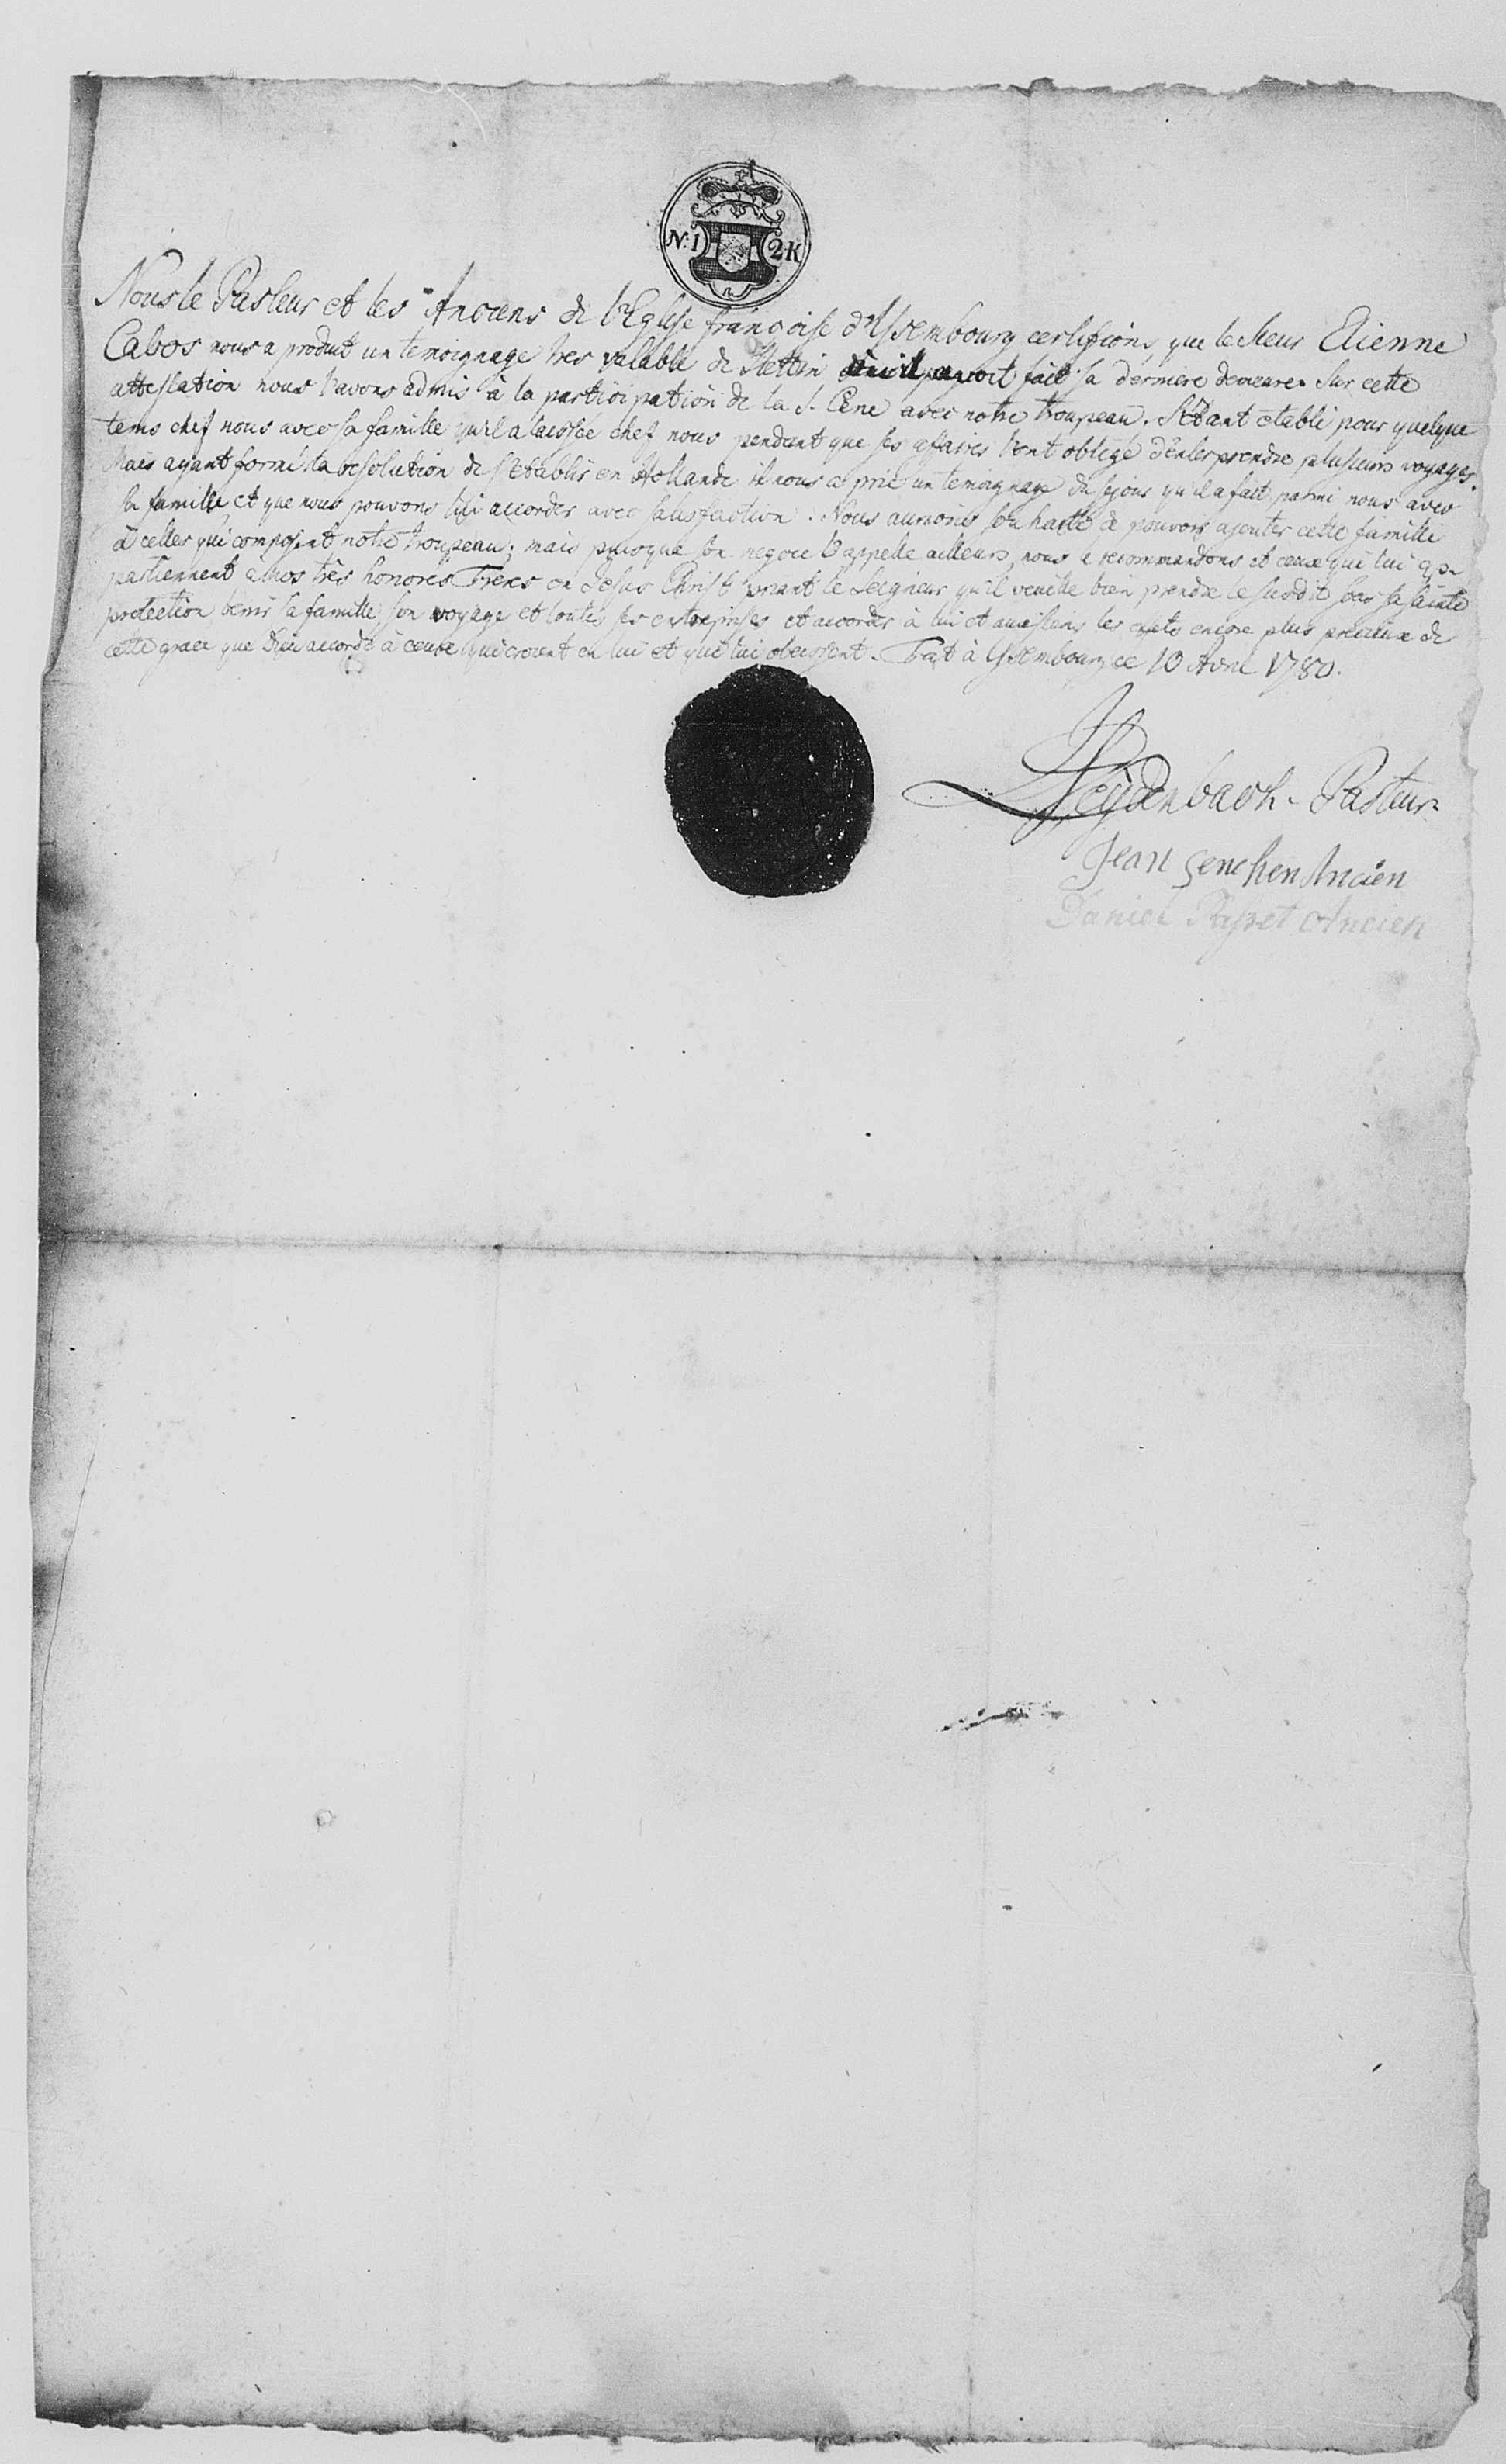 N:1 2K
Nous le Pasteur et les Anciens de l'Eglise françoise d'Ysembourg certifions, que le Sieur Etienne
Cabos nous a produit un temoignage tres valable de Stettin où il avoit fait sa derniere demeure. Sur cette
attestation nous l'avons admis à la participation de la S. Cene avec notre troupeau. S'etant etabli pour quelque
tems chez nous avec sa famille qu'il a laissée chez nous pendant que ses affaires l'ont obligé d'entreprendre plusieurs voyages.
Mais ayant formé la resolution de s'etablir en Hollande il nous a prié un temoignage du sejour qu'il a fait parmi nous avec
sa famille, et que nous pouvons lui accorder avec satisfaction. Nous aurions souhaitté de pouvoir ajouter cette famille
à celles qui composent notre troupeau; mais puisque son negoce l'appelle ailleurs, nous le recommandons et ceux qui lui ap-
partiennent à nos très honorés Freres en Jesus Christ priant le Seigneur qu'il veuille bien prendre le susdit sous sa sainte
protection benir sa famille, son voyage et toutes ses entreprises et accorder à lui et aux siens les effets encore plus precieux de
cette grace que Dieu accorde à ceux qui croient en lui et qui lui obeissent. Fait à Ysembourg ce 10 Avril 1780.
Heydenbach - Pasteur
Jean Senchen Ancien
Daniel Passet Ancien